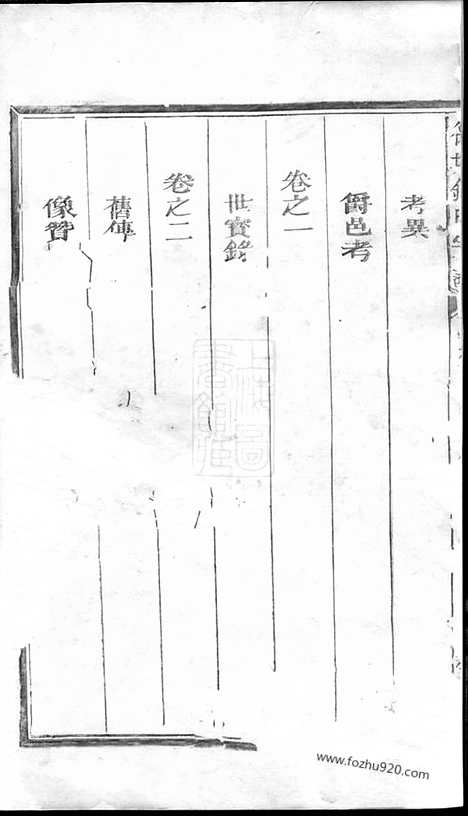 考異
爵邑考
卷之一
世實錄
卷之二
舊傳
像贊
www.fozhu920.com